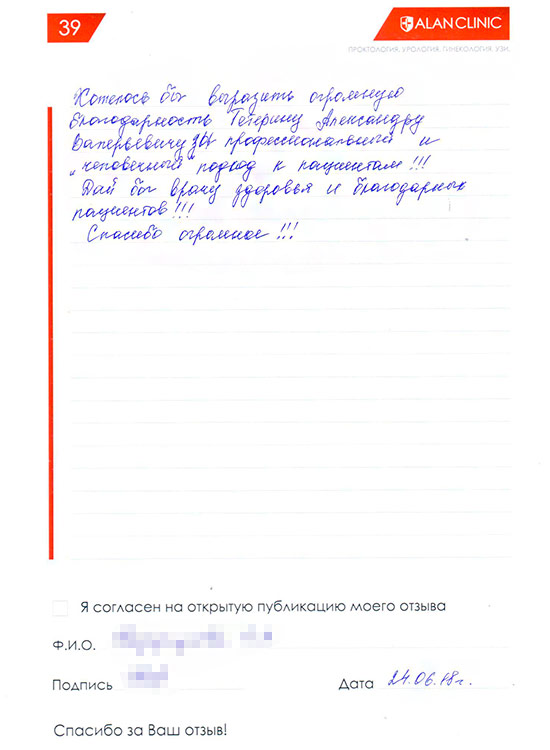 39
ALAN CLINIC
ПРОКТОЛОГИЯ. УРОЛОГИЯ. ГИНЕКОЛОГИЯ. УЗИ.
Хотелось бы выразить огромную
благодарность Тетерину Александру
Валерьевичу за профессиональный и
"человечный" подход к пациентам!!!
Дай бог врачу здоровья и благодарных
пациентов!!!
Спасибо огромное!!!
Я согласен на открытую публикацию моего отзыва
Ф.И.О.
Подпись
Дата 24.06.18г.
Спасибо за Ваш отзыв!